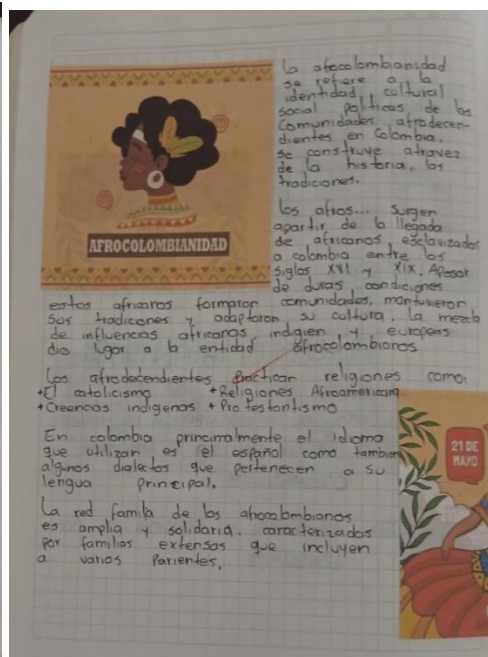 la afrocolombianidad
se refiere a la
identidad, cultural
social politicas de las
Comunidades afrodecen-
dientes en Colombia.
se construye atravez
de la historia, las
tradiciones.
AFROCOLOMBIANIDAD
los afros... surgen
apartir de la llegada
de africanos, esclavizados
a colombia entre los
siglos XVI y XIX. Apesar
de duras, condiciones
estos africanos formaron comunidades, mantuvieron
sus tradicones y adaptaron su cultura. la mezcla
de influencias africanas, indigien y europeas
dio lugar a la entidad afrocolombianos
Los afrodecendientes practican religiones como:
+El catolicismo +Religiones Afroamericana
+Creencias indigenas +Protestantismo
21 DE
MAYO
En colombia principalmente el idioma
que utilizan es el español como tambien
algunos dialectos que pertenecen a su
lengua principal,
La red famila de los afrocolombianos
es amplia y solidaria. caracterizados
por familias extensas que incluyen
a varios parientes.